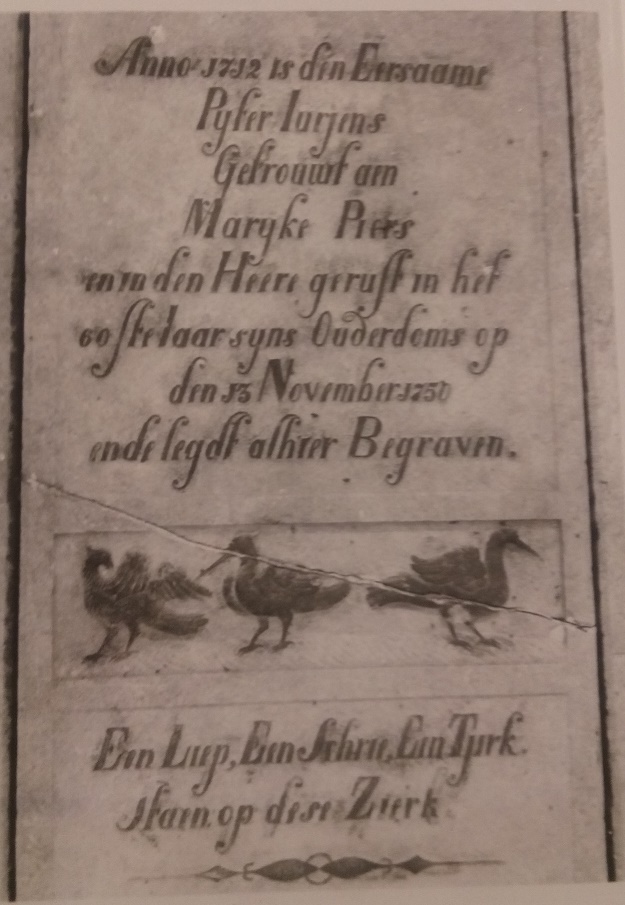 Anno 1712 is den Eersaame
Pyter Iurjens
Getrouwt am
Maryke Piers
en in den Heere gerust in het
60ste Iaar syns Ouderdoms op
den 13 November 1750
ende legdt alhier Begraven.
Een Liep, Een Schrie, Een Tjirk
staen op dese Zierk